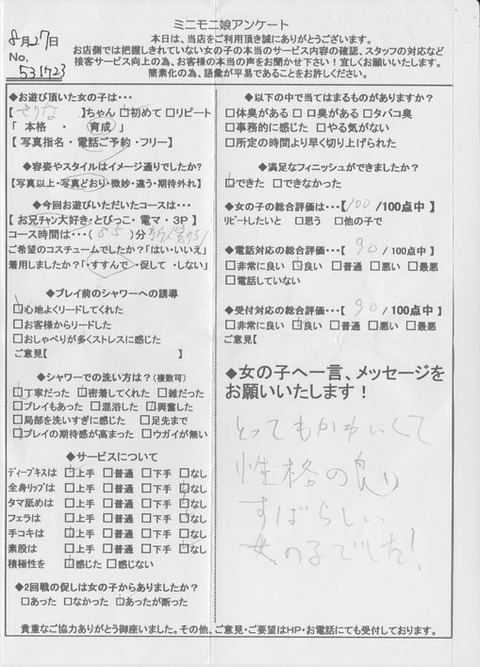 8月27日
No.
531723
ミニモニ娘アンケート
本日は、当店をご利用頂き誠にありがとうございます。
お店側では把握しきれていない女の子の本当のサービス内容の確認、スタッフの対応など
接客サービス向上の為、お客様の本当の声をお聞かせ下さい!宜しくお願いいたします。
簡素化の為、語彙が平易であることをお許しください。
◆お遊び頂いた女の子は・・・
【 】ちゃん □初めて □リピート
「 本格 ・ 育成 」
【 写真指名 ・ 電話ご予約 ・ フリー】
◆容姿やスタイルはイメージ通りでしたか?
【写真以上・写真どおり・微妙・違う・期待外れ】
◆今回お遊びいただいたコースは・・・
【 お兄チャン大好き・とびっこ・ 電マ ・ 3P 】
コース時間は・・・( 85 )分
ご希望のコスチュームでしたか?「はい・いいえ」
着用しましたか?「・すすんで ・促して ・しない」
◆プレイ前のシャワーへの誘導
□心地よくリードしてくれた
□お客様からリードした
□おしゃべりが多くストレスに感じた
ご意見【 】
◆シャワーでの洗い方は?(複数可)
□丁寧だった □密着してくれた □雑だった
□プレイもあった □混浴した □興奮した
□局部を洗いすぎに感じた □足先まで
□プレイの期待感が高まった □ウガイが無い
◆サービスについて
ディープキスは □上手 □普通 □下手 □なし
全身リップは □上手 □普通 □下手 □なし
タマ舐めは □上手 □普通 □下手 □なし
フェラは □上手 □普通 □下手 □なし
手コキは □上手 □普通 □下手 □なし
素股は □上手 □普通 □下手 □なし
積極性を □感じた □感じない
◆2回戦の促しは女の子からありましたか?
□あった □なかった □あったが断った
◆以下の中で当てはまるものがありますか?
□体臭がある □口臭がある □タバコ臭
□事務的に感じた □やる気がない
□所定の時間より早く切り上げられた
◆満足なフィニッシュができましたか?
□できた □できなかった
◆女の子の総合評価は・・・【 100 /100点中 】
リピートしたいと □思う □他の子で
◆電話対応の総合評価・・・【 90 /100点中 】
□非常に良い □良い □普通 □悪い □最悪
□電話していない
◆受付対応の総合評価・・・【 90 /100点中 】
□非常に良い □良い □普通 □悪い □最悪
ご意見【
◆女の子へ一言、メッセージを
お願いいたします!
とってもかわいくて
性格の良い
すばらしい
女の子でした!
貴重なご協力ありがとう御座いました。その他、ご意見・ご要望はHP・お電話にても受付しております。